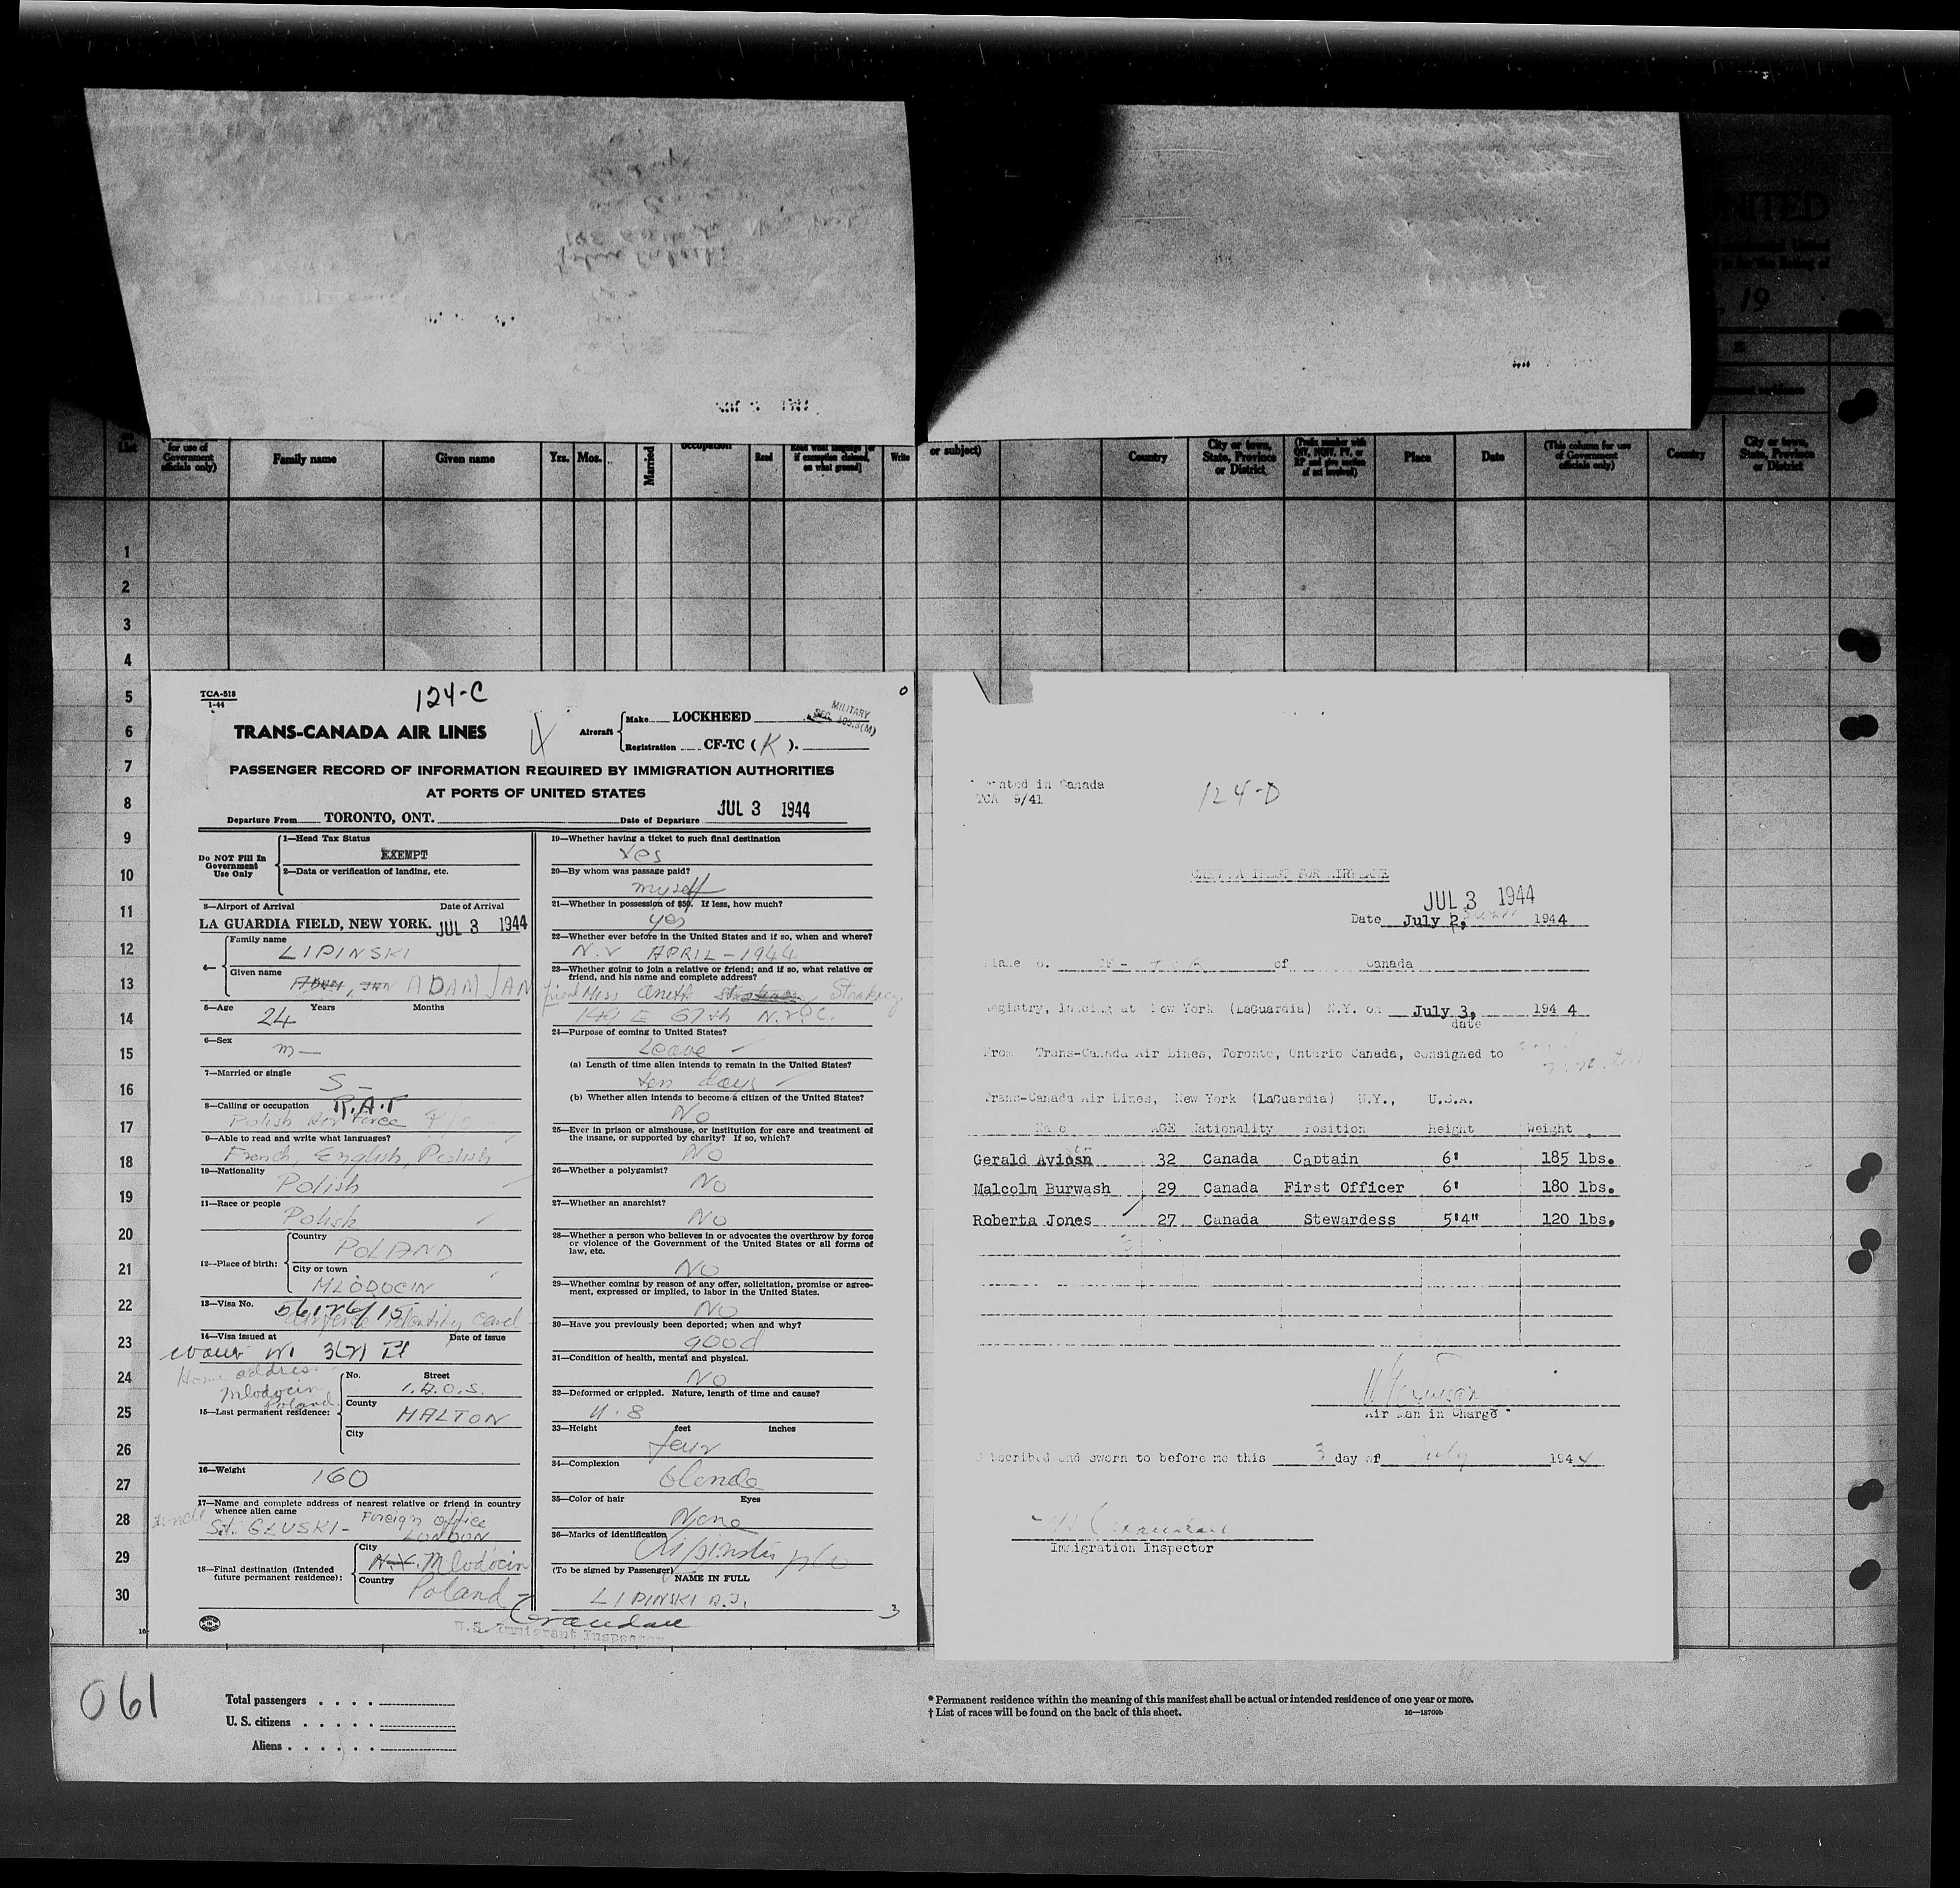 UNITED
19
for use of
Government
officials only)
Family name
Given name
Yrs.
Mos.
Married
occupation
Read
if exemption claimed,
on what ground]
Write
or subject)
Country
City or town,
State, Province
or District
Place
Date
(This column for use
of Government
officials only)
Country
City or town,
State, Province
or District
1
2
3
4
5
6
7
8
9
10
11
12
13
14
15
16
17
18
19
20
21
22
23
24
25
26
27
28
29
30
TCA-518
1-44
124-C
TRANS-CANADA AIR LINES
Aircraft
Make LOCKHEED
MILITARY
Registration CF-TC (K).
PASSENGER RECORD OF INFORMATION REQUIRED BY IMMIGRATION AUTHORITIES
AT PORTS OF UNITED STATES
Departure From TORONTO, ONT. Date of Departure JUL 3 1944
Do NOT Fill In
Government
Use Only
1—Head Tax Status
EXEMPT
2—Data or verification of landing, etc.
3—Airport of Arrival Date of Arrival
LA GUARDIA FIELD, NEW YORK. JUL 3 1944
4—
Family name
LIPINSKI
Given name
ADAM, JAN ADAM JAN
5—Age Years Months
24
6—Sex
M—
7—Married or single
S—
8—Calling or occupation R.A.F
Polish Air Force
9—Able to read and write what languages?
French, English, Polish
10—Nationality
Polish
11—Race or people
Polish
12—Place of birth:
Country
POLAND
City or town
MLODOCIN
13—Visa No.
identity card
14—Visa issued at Date of issue
3(2)
Home address
Mlodocin
Poland
15—Last permanent residence:
No. Street
County
HALTON
City
16—Weight
160
17—Name and complete address of nearest relative or friend in country
whence alien came
St. GLUSKI - Foreign office
LONDON
18—Final destination (Intended
future permanent residence):
City
N.Y. Mlodocin
Country
Poland
19—Whether having a ticket to such final destination
Yes
20—By whom was passage paid?
myself
21—Whether in possession of $50. If less, how much?
yes
22—Whether ever before in the United States and if so, when and where?
N.Y APRIL - 1944
23—Whether going to join a relative or friend; and if so, what relative or
friend, and his name and complete address?
friend Miss
E 67th N.Y.C.
24—Purpose of coming to United States?
Leave
(a) Length of time alien intends to remain in the United States?
ten days
(b) Whether alien intends to become a citizen of the United States?
No
25—Ever in prison or almshouse, or institution for care and treatment of
the insane, or supported by charity? If so, which?
No
26—Whether a polygamist?
No
27—Whether an anarchist?
No
28—Whether a person who believes in or advocates the overthrow by force
or violence of the Government of the United States or all forms of
law, etc.
No
29—Whether coming by reason of any offer, solicitation, promise or agree-
ment, expressed or implied, to labor in the United States.
No
30—Have you previously been deported; when and why?
good
31—Condition of health, mental and physical.
No
32—Deformed or crippled. Nature, length of time and cause?
33—Height feet inches
34—Complexion
blonde
35—Color of hair Eyes
None
36—Marks of identification
(To be signed by Passenger)
NAME IN FULL
LIPINSKI A.J.
Crandall
U.S. Immigrant Inspector
3
Printed in Canada
TCA 9/41
124-D
JUL 3 1944
Date July 2, 1944
Plane No. of Canada
Registry, landing at New York (LaGuardia) N.Y. on July 3, 1944
date
From Trans-Canada Air Lines, Toronto, Ontario Canada, consigned to
Trans-Canada Air Lines, New York (LaGuardia) N.Y., U.S.A.
Name AGE Nationality Position Height Weight
Gerald Aviosn 32 Canada Captain 6' 185 lbs.
Malcolm Burwash 29 Canada First Officer 6' 180 lbs.
Roberta Jones 27 Canada Stewardess 5'4" 120 lbs.
3
Air Man in Charge
Subscribed and sworn to before me this 3 day of July 1944
Immigration Inspector
061
Total passengers
U. S. citizens
Aliens
* Permanent residence within the meaning of this manifest shall be actual or intended residence of one year or more.
† List of races will be found on the back of this sheet.